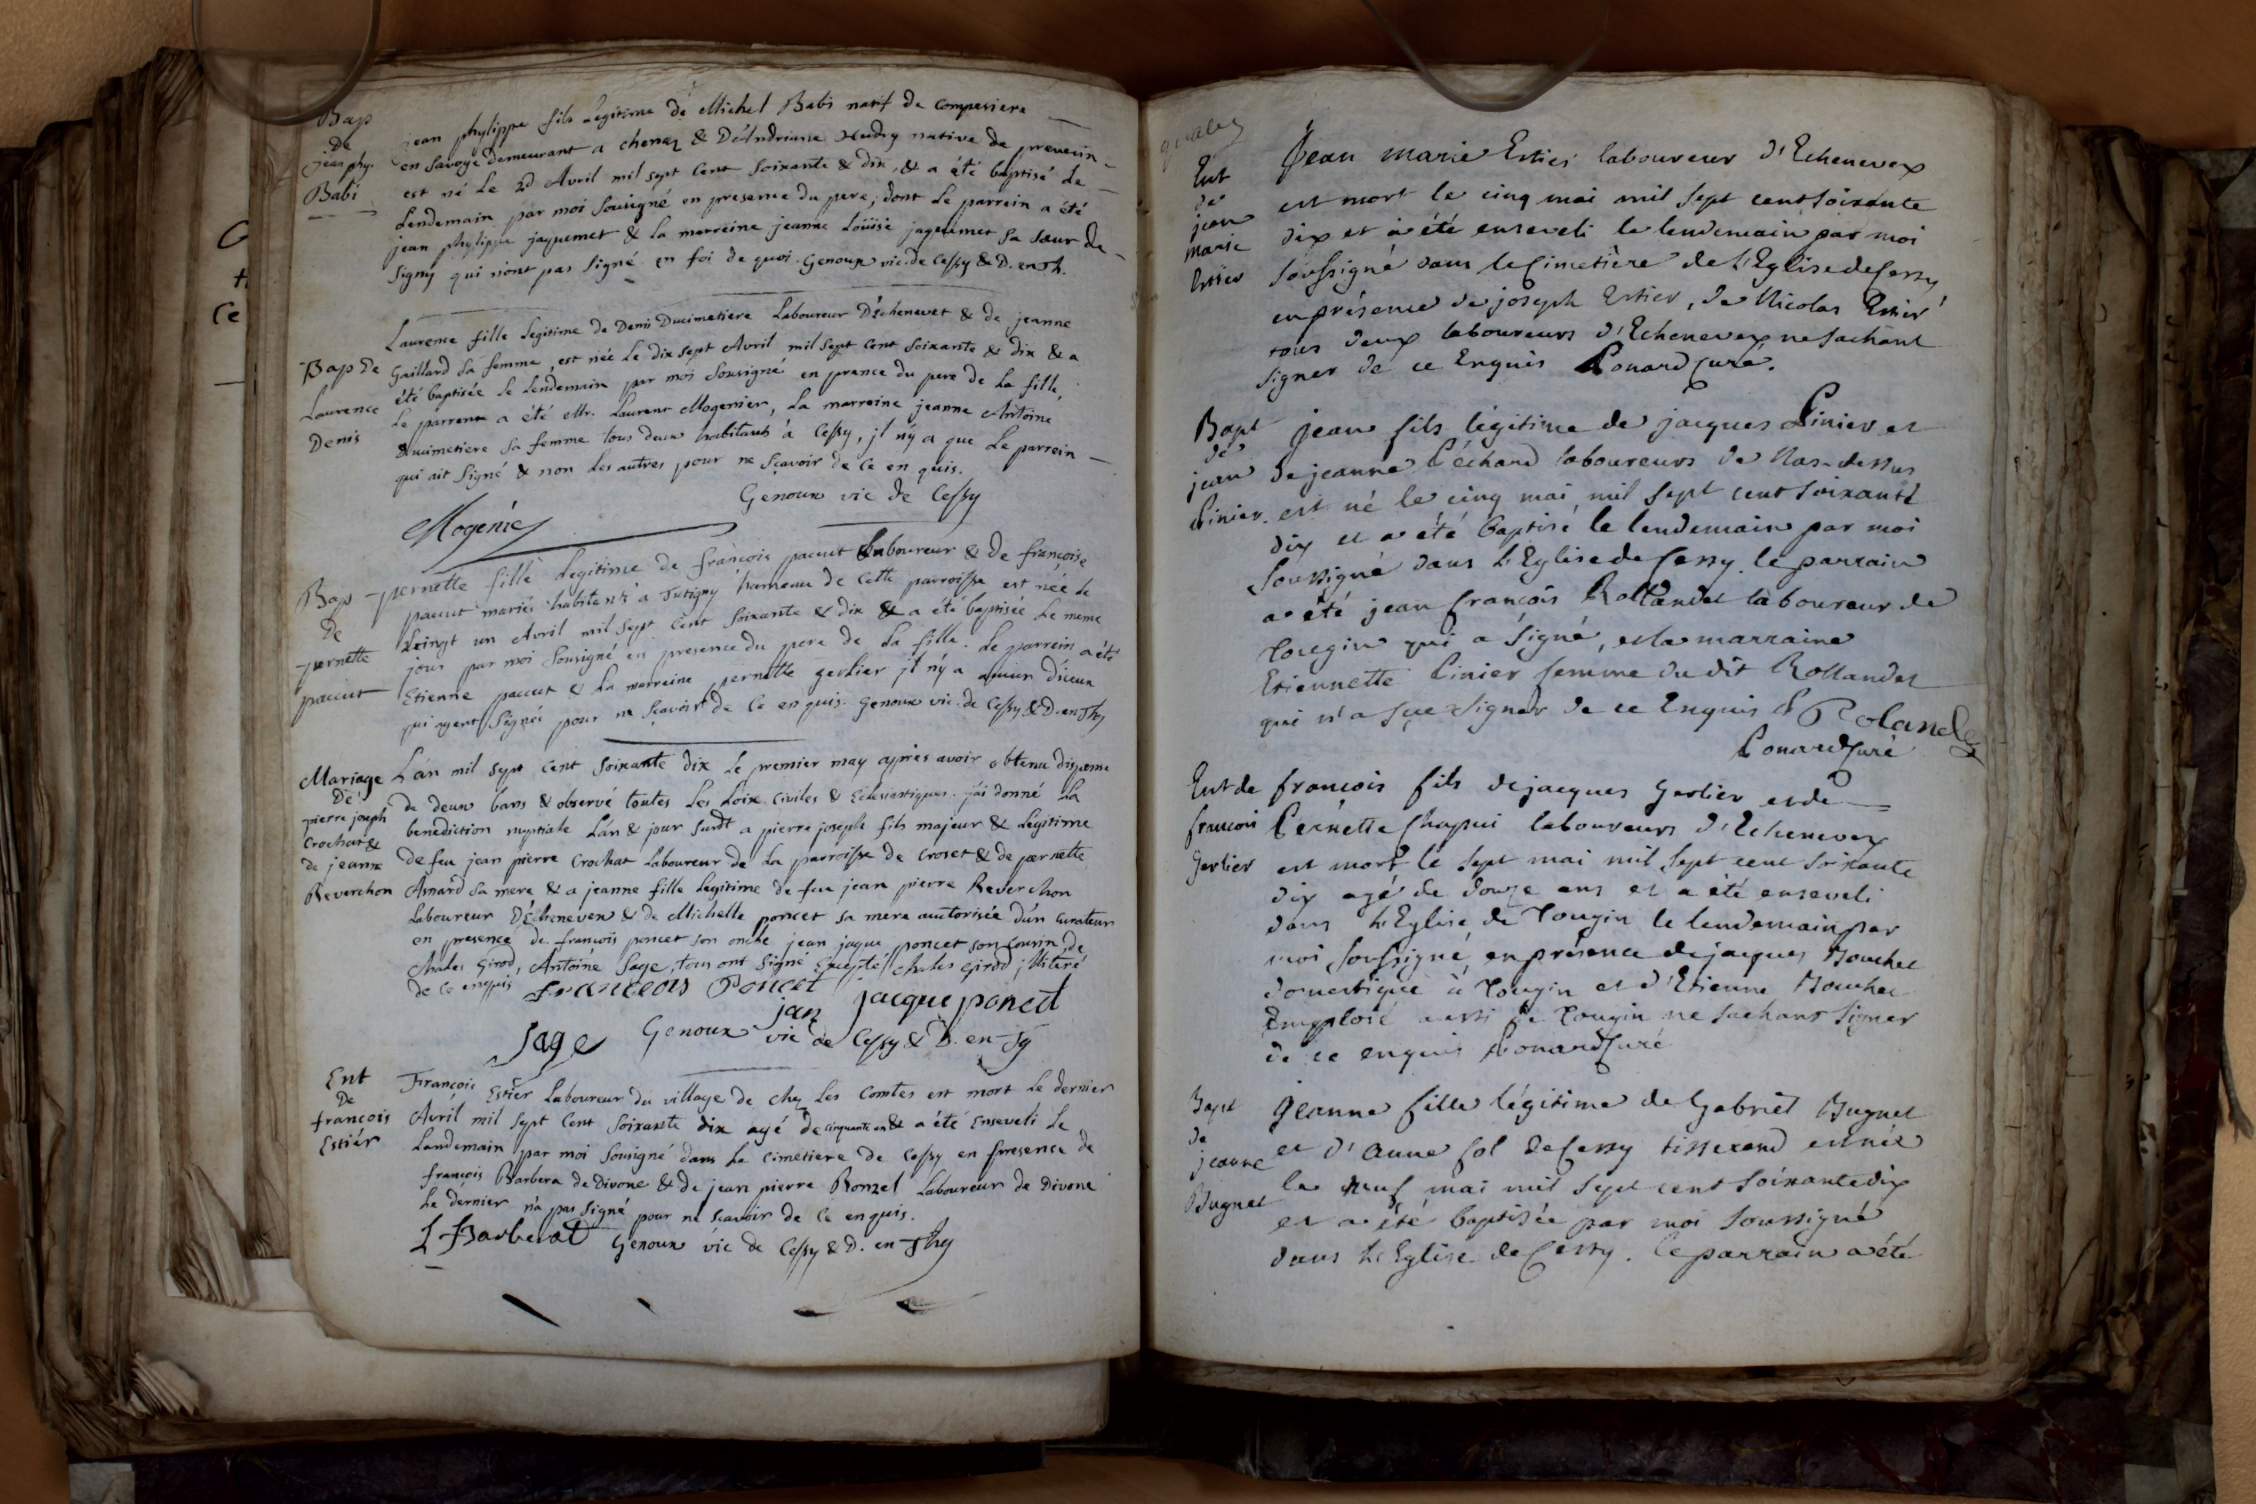 Bap
de
jean phy.
Babi
jean phylippe fils Legitime de Michel Babi natif de Compesiere
en Savoye demeurant a chenaz & D'Andriane Hudry native de prevecin
est né Le 2d Avril mil sept Cent Soixante & dix, & a été baptisé Le
Lendemain par moi Sousigné en presence du pere; dont Le parrein a été
jean phylippe jaquemet & La marreine jeanne Loüise jaquemet Sa Sœur de
Signy qui n'ont pas Signé en foi de quoi. Genoux vic. de Cessy & D. en Th.
Bap de
Laurence
Denis
Laurence fille Legitime de Denis Ducimetiere Laboureur D'Echenevet & de jeanne
Gaillard Sa femme, est née Le dix sept Avril mil sept Cent Soixante & dix & a
été baptisée Le Lendemain par moi Sousigné en prance du pere de La fille,
Le parrein a été Mr. Laurent Mogenier, La marreine jeanne Antoine
Ducimetiere Sa femme tous deux habitants à Cessy, jl n'y a que Le parrein
qui ait Signé & non Les autres pour ne Sçavoir de Ce en quis.
Genoux vic de Cessy
Mogenie
Bap
De
pernette
paccut
pernette fille Legitime de françois paccut Laboureur & de françoise
paccut mariés habitents a Tutigny hameau de Cette parroisse est née Le
Veingt un Avril mil Sept Cent Soixante & dix & a été baptisée Le meme
jour par moi Sousigné en presence du pere de La fille. Le parrein a été
Etienne paccut & La marreine pernette gerlier jl n'y a aucun d'iceux
qui ayent Signés pour ne Sçavoir de Ce en quis. Genoux vic. de Cessy & D. en Thy
Mariage
De
pierre joseph
Crochat &
de jeanne
Reverchon
L'an mil sept Cent Soixante dix Le premier may après avoir obtenu dispense
de deux bans & observé toutes Les Loix Civiles & Eclesiastiques. j'ai donné La
benediction nuptiale L'an & jour Susdt a pierre joseph fils majeur & Legitime
de feu jean pierre Crochat Laboureur de La parroisse de Crozet & de pernette
Amard Sa mere & a jeanne fille Legitime de feu jean pierre Reverchon
Laboureur D'Echenevex & de Michelle poncet sa mere auttorisée d'un Curateur
en presence de françois poncet son oncle jean jaque poncet son Cousin, de
Charles Girod, Antoine Sage, tous ont Signé Excepté Charles Girod jllitéré
de Ce enquis franceois Poncet
jan jacque poncet
Sage Genoux vic de Cessy & D. en Thy
Ent
De
françois
Estiér
François Estier Laboureur du village de chez Les Comtes est mort Le dernier
Avril mil sept Cent Soixante dix agé de cinquante an & a été Enseveli Le
Landemain par moi Sousigné dans Le Cimetiere de Cessy en presence de
françois Barbera de Divone & de jean pierre Ronzel Laboureur de Divone
Le dernier n'a pas Signé pour ne Scavoir de Ce enquis.
f Barberat Genoux vic de Cessy & D. en Thy
Ent
de
jean
marie
Estier
Jean marie Estier laboureur d'Echenevex
est mort le cinq mai mil sept cent soixante
dix et a été enseveli le lendemain par moi
soussigné dans le Cimetière de L'Eglise de Cessy
en présence de joseph Estier, de Nicolas Estier
tous deux laboureurs d'Echenevex ne sachant
signer de ce Enquis Ponard Curé.
Bapt
de
jean
Pinier
Jean fils légitime de jacques Pinier et
de jeanne Péchard laboureurs de Nas-dessus
est né le cinq mai mil sept cent soixante
dix et a été baptisé le lendemain par moi
soussigné dans L'Eglise de Cessy. le parrain
a été jean françois Rollandet laboureur de
Tougin qui a signé, et la marraine
Etiennette Pinier femme du dit Rollandet
qui n'a sçue signer de ce Enquis f Rolande
Ponard Curé
Ent de
françois
Gerlier
françois fils de jacques Gerlier et de
Pernette Chapui laboureurs d'Echenevex
est mort le sept mai mil sept cent soixante
dix agé de douze ans et a été enseveli
dans L'Eglise de Tougin le lendemain par
moi soussigné en présence de jacques Mouchet
domestique à Tougin et d'Etienne Mouchet
Employé aussi de Tougin ne sachant signer
de ce enquis Ponard Curé
Bapt
de
jeanne
Bugnet
Jeanne fille légitime de Gabriel Bugnet
et d'anne Col de Cessy tisserand est née
le neuf mai mil sept cent soixante dix
et a été baptisée par moi soussigné
dans L'Eglise de Cessy. Le parrain a été